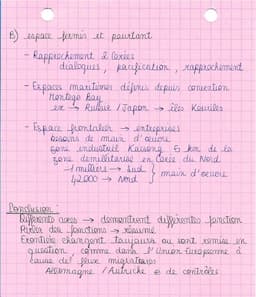 B) espace fermés et pourtant
- Rapprochement 2 Corées
dialogues, pacification, rapprochement
- Espaces maritimes définis depuis convention
Montego Bay
ex → Russie / Japon → îles Kouriles
- Espace frontalier → entreprises
besoins de main d'œuvre
zone industriel Kaesong 5 km de la
zone démilitarisé en Corée du Nord
1 milliers → Sud
42000 → Nord } main d'œuvre
Conclusion :
Différents axes → démontrent différentes fonction
Parler des fonctions → résumé
Frontière changent toujours ou sont remise en
question, comme dans l'Union Européenne à
cause des flux migratoires
Allemagne / Autriche de contrôles